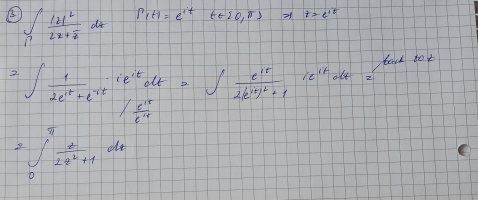 ③ ∫_Γ |z|² / (2z + z̄) dz   Γ(t) = e^{it}   t∈[0, π]   ⇒ z = e^{it}
= ∫ 1 / (2e^{it} + e^{-it}) · ie^{it} dt = ∫ e^{it} / (2(e^{it})² + 1) ie^{it} dt = back to z
/ e^{it} / e^{it}
= ∫_0^π z / (2z² + 1) dz